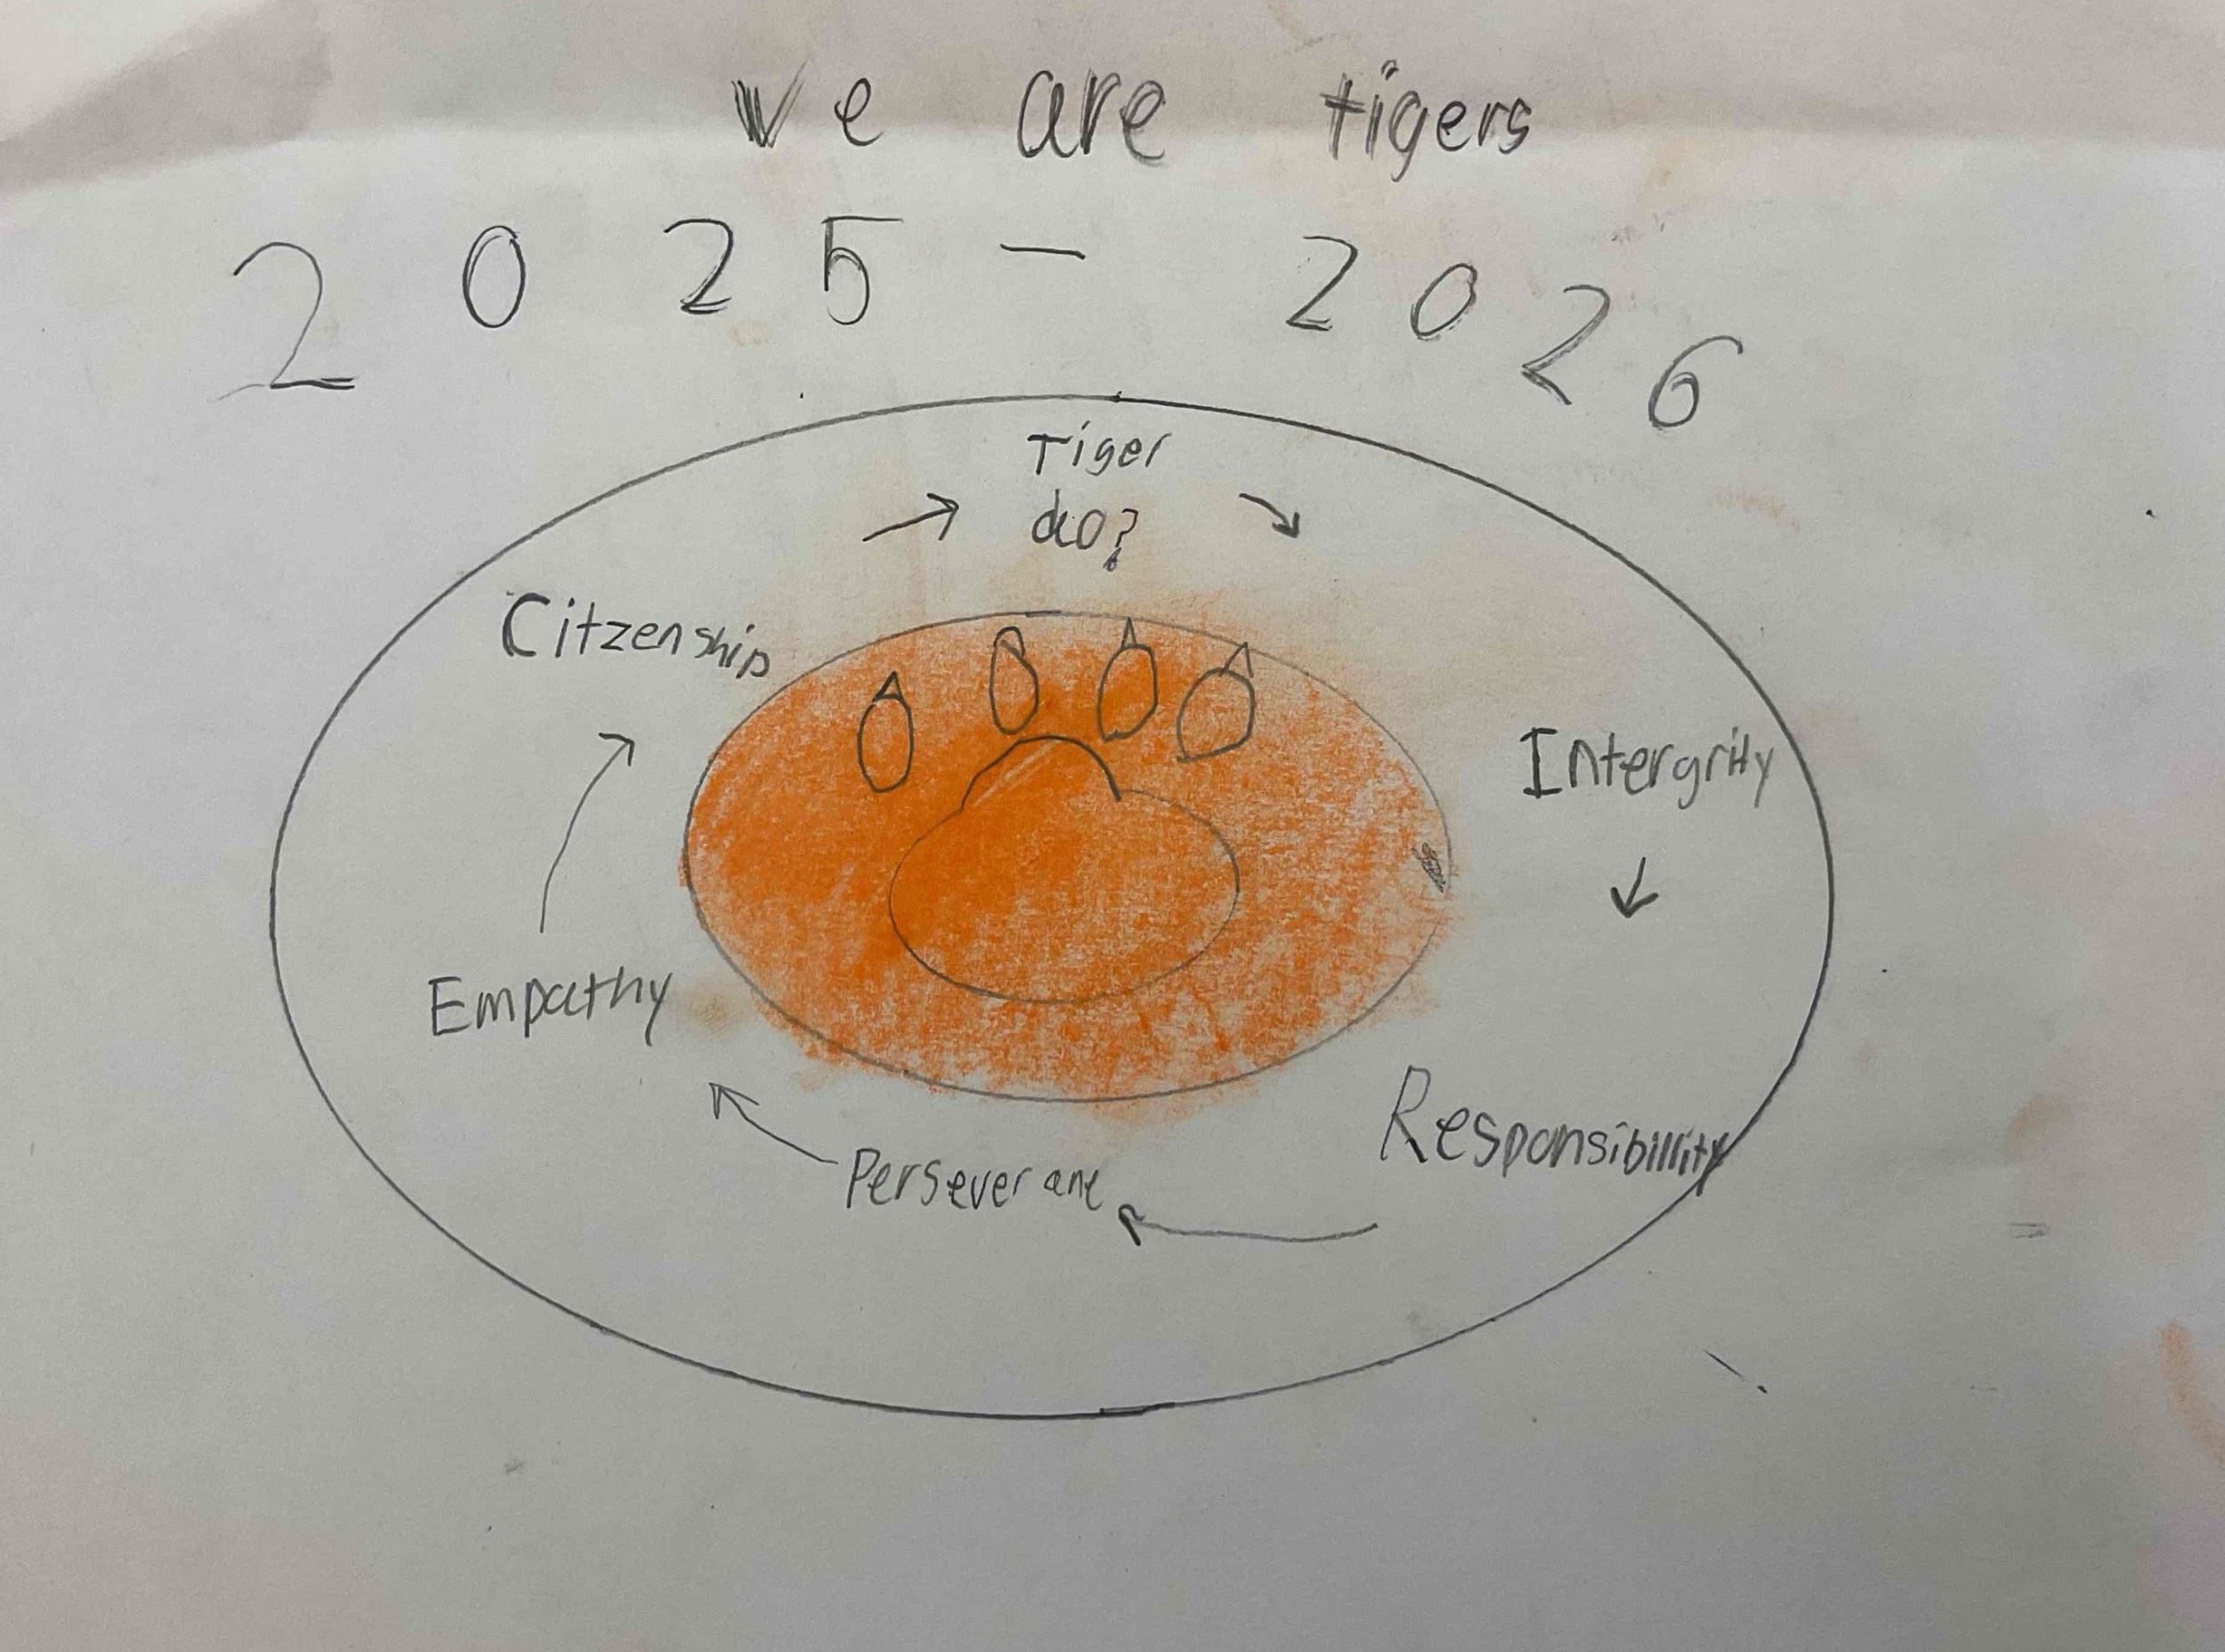 we are tigers
2025 - 2026
Tiger
do?
Citzenship
Intergrity
Empathy
Responsibillity
Perseverane